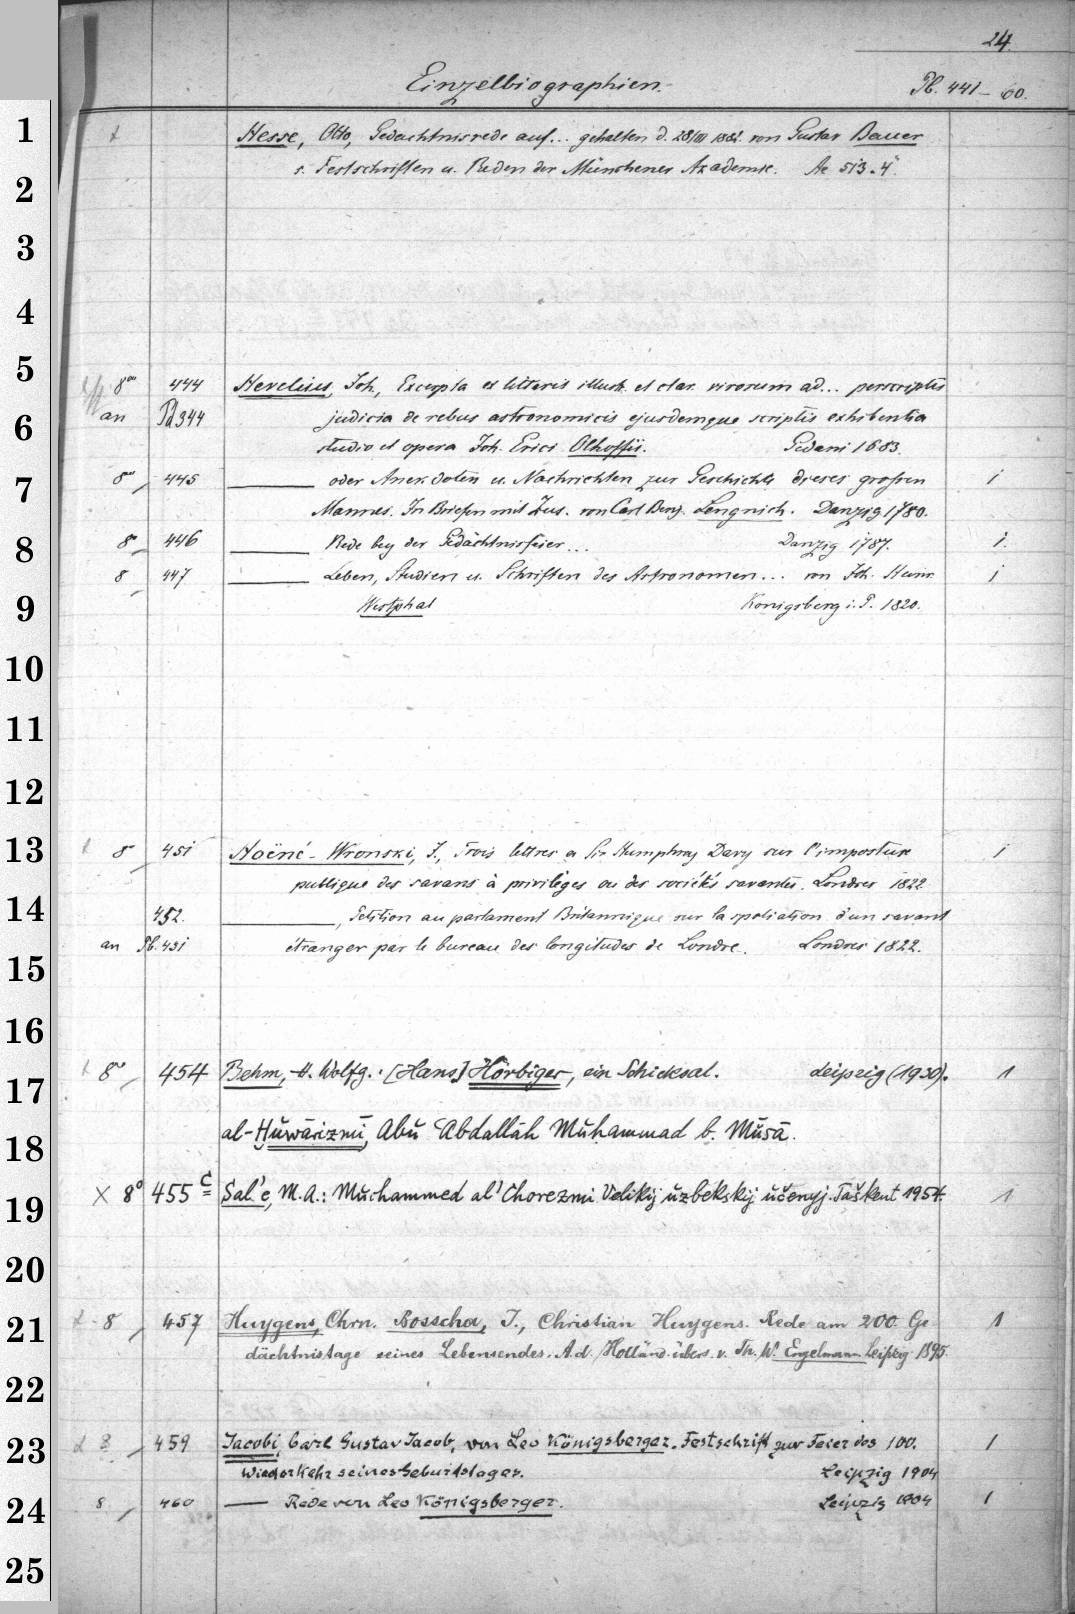 24.
Einzelbiographien.
Pb. 441-60.
1
Hesse, Otto, Gedächtnisrede auf... gehalten d. 28/III 1882 von Gustav Bauer
2
s. Festschriften u. Reden der Münchener Akademie. Ae 513.4°
3
4
5
8° 444 Hevelius, Joh., Excerpta ex litteris illustr. et clar. virorum ad... perscriptis
6
an Pd 944 judicia de rebus astronomicis ejusdemque scriptis exhibentia
studio et opera Joh. Erici Olhoffii. Gedani 1683.
7
8° 445 ——— oder Anekdoten u. Nachrichten zur Geschichte dieses grossen 1
Mannes. In Briefen mit Zus. von Carl Benj. Lengnich. Danzig 1780.
8
8° 446 ——— Rede bey der Gedächtnisfeier... Danzig 1787. 1.
8 447 ——— Leben, Studien u. Schriften des Astronomen... von Joh. Heinr. 1
9
Westphal Königsberg i. P. 1820.
10
11
12
13
8 451 Hoëné-Wronski, J., Trois lettres a Sir Humphrey Davy sur l'imposture 1
publique des savans à privilèges ou des sociétés savantes. Londres 1822
14
452. ———, Pétition au parlament Britannique sur la spoliation d'un savant
15
an Pb. 451 étranger par le bureau des longitudes de Londre. Londres 1822.
16
17
8° 454 Behm, H. Wolfg.: [Hans] Hörbiger, ein Schicksal. Leipzig (1930). 1
18
al-Ḫuwārizmī, Abū ʿAbdallāh Muḥammad b. Mūsā.
19
X 8° 455 c Sal'e, M.A.: Muchammed al' Chorezmi Velikij uzbekskij učenyj. Taškent 1954. 1
20
21
8 457 Huygens, Chrn. Bosscha, J., Christian Huygens. Rede am 200. Ge-
dächtnistage seines Lebensendes. A. d. Holländ. übers. v. Th. W. Engelmann Leipzig 1895. 1
22
23
8 459 Jacobi, Carl Gustav Jacob, von Leo Königsberger. Festschrift zur Feier des 100. 1
Wiederkehr seines Geburtstages. Leipzig 1904
24
8 460 —— Rede von Leo Königsberger. Leipzig 1904 1
25